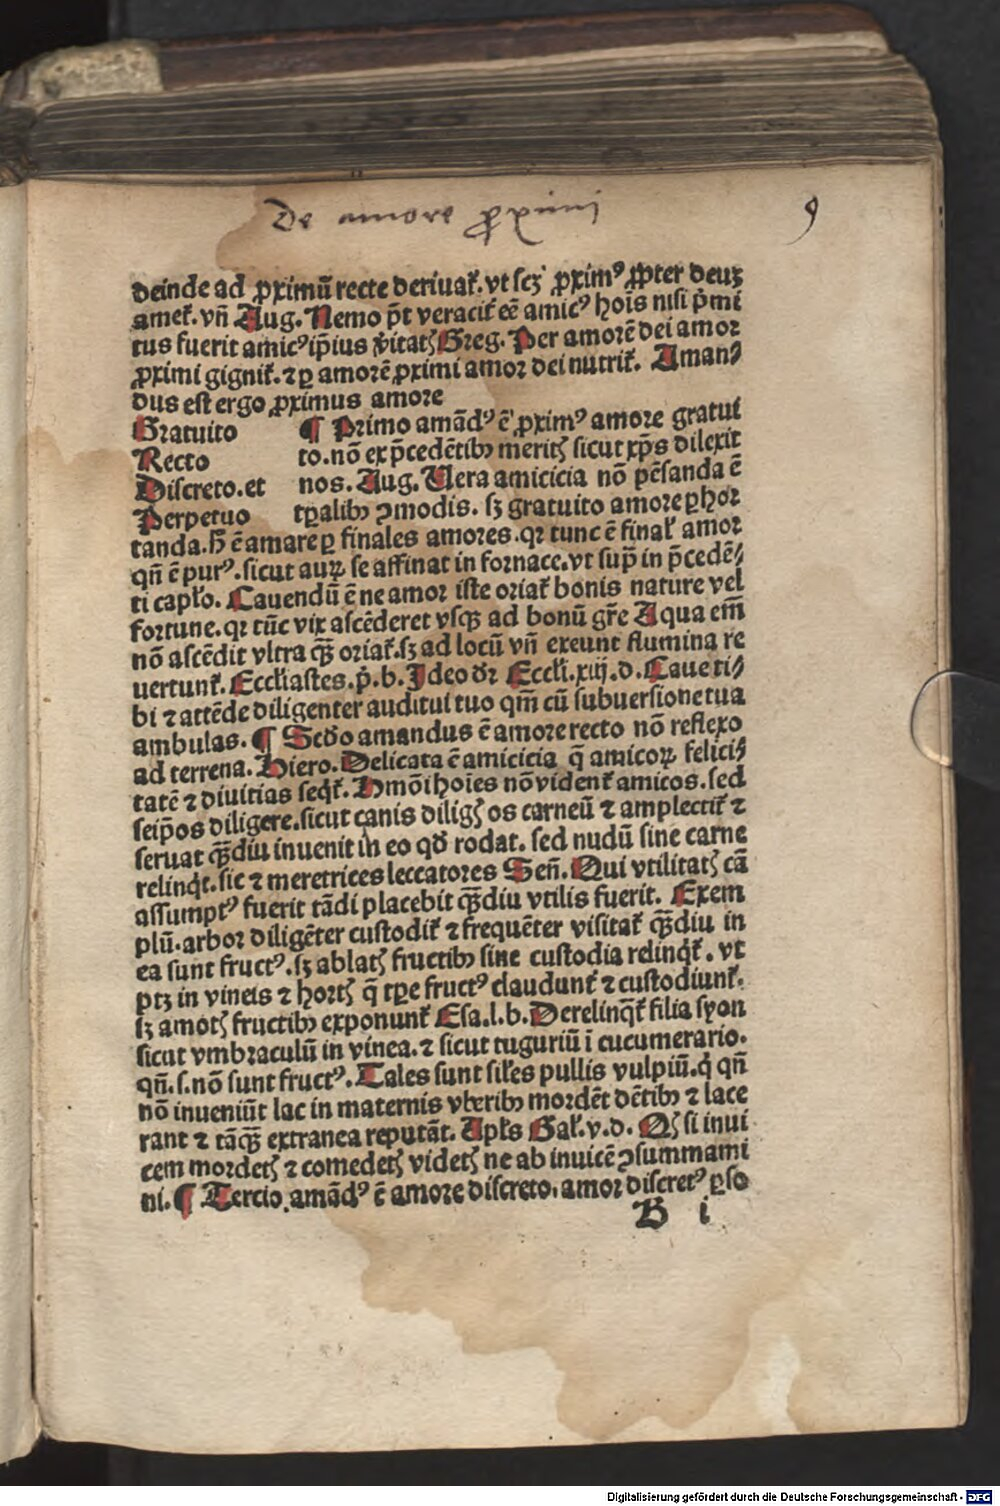 De amore ꝓximi
9
deinde ad ꝓximū recte deriuat᷑. vt scz ꝓximꝰ ꝓpter deuz
amet᷑. vn̄ Aug. Nemo p̄t veracit᷑ eē amicꝰ hoīs nisi p̄mi
tus fuerit amicꝰ ip̄ius v̓itatꝭ Greg. Per amorē dei amor
ꝓximi gignit᷑. ⁊ ꝑ amorē ꝓximi amor dei nutrit᷑. Aman⸗
dus est ergo ꝓximus amore
Gratuito ¶ Primo amādꝰ ē ꝓximꝰ amore gratui
Recto to. nō ex p̄cedētibꝫ meritꝭ sicut xp̄s dilexit
Discreto. et nos. Aug. Uera amicicia nō pēsanda ē
Perpetuo tꝑalibꝫ ꝯmodis. sꝫ gratuito amore ꝑhor
tanda. H̄ ē amare ꝑ finales amores. qꝛ tunc ē final᷑ amor
qn̄ ē purꝰ. sicut auꝝ se affinat in fornace. vt sup̄ in p̄cedē⸗
ti capl̓o. Cauendū ē ne amor iste oriat᷑ bonis nature vel
fortune. qꝛ tūc vix ascēderet vsqꝫ ad bonū gr̄e Aqua em̄
nō ascēdit vltra qꝫ̄ oriat᷑. sꝫ ad locū vn̄ exeunt flumina re
uertunt᷑. Eccl̓iastes. p̓. b. Ideo dr̄ Eccl̓i. xiij. d. Caue ti⸗
bi ⁊ attēde diligenter auditui tuo qm̄ cū subuersione tua
ambulas. ¶ Scd̓o amandus ē amore recto nō reflexo
ad terrena. Hiero. Delicata ē amicicia q̄ amicoꝝ felici⸗
tatē ⁊ diuitias seq̓t᷑. Hmōi hoīes nō vident᷑ amicos. sed
seip̄os diligere. sicut canis diligꝭ os carneū ⁊ amplectit᷑ ⁊
seruat qꝫ̄diu inuenit in eo qd̓ rodat. sed nudū sine carne
relinq̓t. sic ⁊ meretrices leccatores Sen̄. Qui vtilitatꝭ cā
assumptꝰ fuerit tādi placebit qꝫ̄diu vtilis fuerit. Exem
plū. arbor diligēter custodit᷑ ⁊ frequēter visitat᷑ qꝫ̄diu in
ea sunt fructꝰ. sꝫ ablatꝭ fructibꝫ sine custodia relinq̓t᷑. vt
ptꝫ in vineis ⁊ hortꝭ q̄ tꝑe fructꝰ claudunt᷑ ⁊ custodiunt᷑.
sꝫ amotꝭ fructibꝫ exponunt᷑ Esa. l. b. Derelinq̄t᷑ filia syon
sicut vmbraculū in vinea. ⁊ sicut tuguriū ī cucumerario.
qn̄. s. nō sunt fructꝰ. Tales sunt sil̓es pullis vulpiū. q̓ qn̄
nō inueniūt lac in maternis vberibꝫ mordēt dētibꝫ ⁊ lace
rant ⁊ tāqꝫ̄ extranea reputāt. Apl̓s Gal᷑. v. d. Qꝭ si inui
cem mordetꝭ ⁊ comedetꝭ videtꝭ ne ab inuicē ꝯsummami
ni. ¶ Tercio. amādꝰ ē amore discreto. amor discretꝰ ꝑso
B i
Digitalisierung gefördert durch die Deutsche Forschungsgemeinschaft - DFG